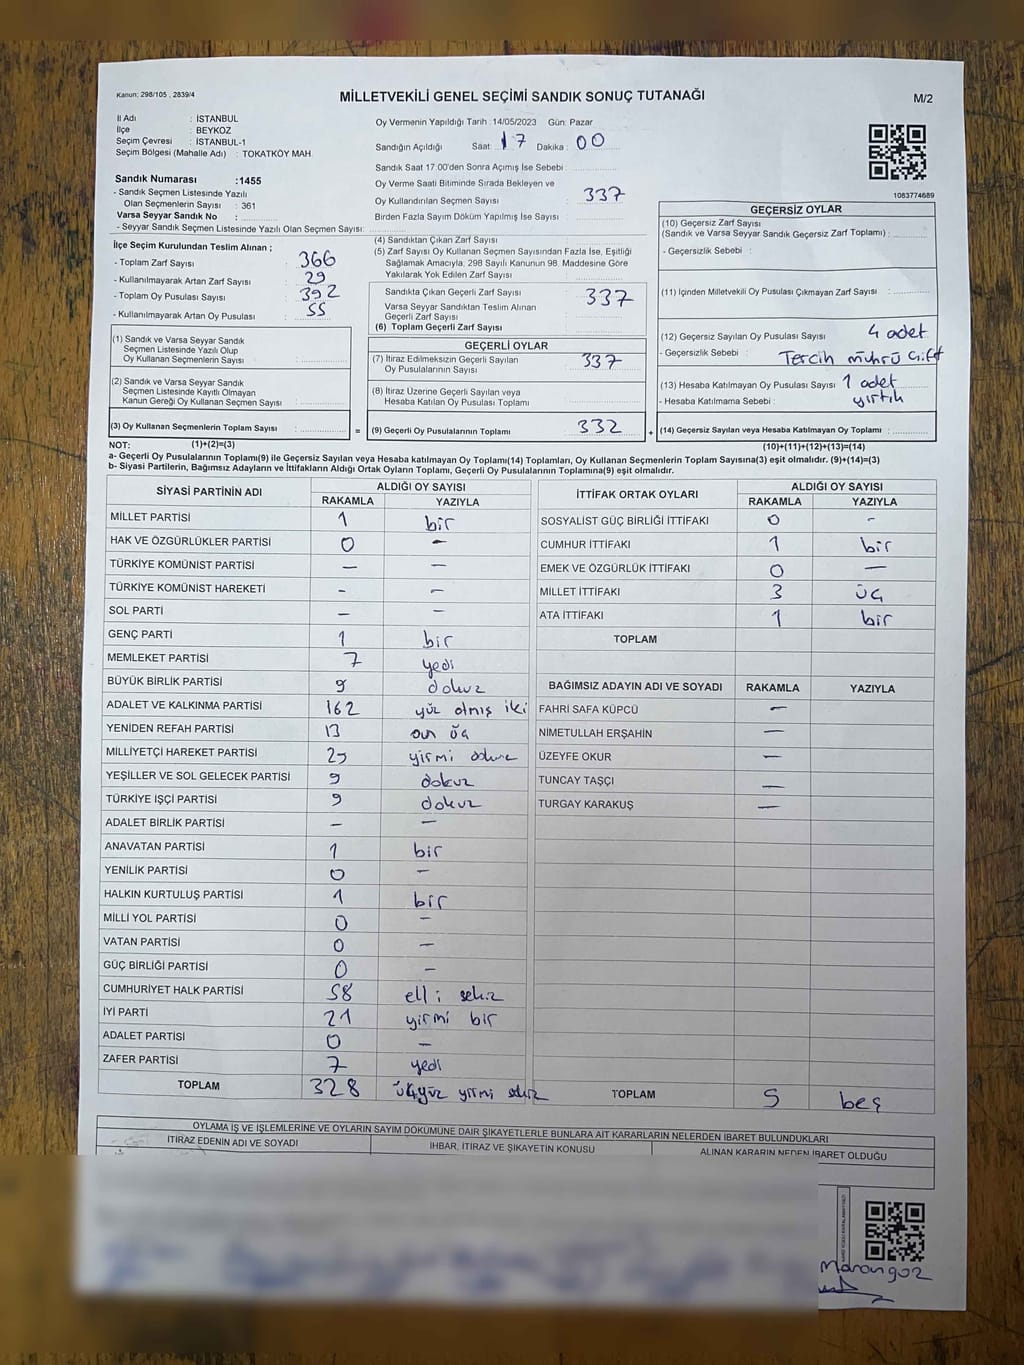 Kanun: 298/105 , 2839/4
MİLLETVEKİLİ GENEL SEÇİMİ SANDIK SONUÇ TUTANAĞI
M/2
İl Adı : İSTANBUL
İlçe : BEYKOZ
Seçim Çevresi : İSTANBUL-1
Seçim Bölgesi (Mahalle Adı) : TOKATKÖY MAH
Sandık Numarası :1455
- Sandık Seçmen Listesinde Yazılı
Olan Seçmenlerin Sayısı : 361
Varsa Seyyar Sandık No :
- Seyyar Sandık Seçmen Listesinde Yazılı Olan Seçmen Sayısı:
Oy Vermenin Yapıldığı Tarih : 14/05/2023 Gün: Pazar
Sandığın Açıldığı Saat: 17 Dakika: 00
Sandık Saat 17:00'den Sonra Açımış İse Sebebi :
Oy Verme Saati Bitiminde Sırada Bekleyen ve
Oy Kullandırılan Seçmen Sayısı : 337
Birden Fazla Sayım Döküm Yapılmış İse Sayısı :
1083774689
İlçe Seçim Kurulundan Teslim Alınan ;
- Toplam Zarf Sayısı : 366
- Kullanılmayarak Artan Zarf Sayısı : 29
- Toplam Oy Pusulası Sayısı : 392
- Kullanılmayarak Artan Oy Pusulası : 55
(1) Sandık ve Varsa Seyyar Sandık
Seçmen Listesinde Yazılı Olup
Oy Kullanan Seçmenlerin Sayısı :
(2) Sandık ve Varsa Seyyar Sandık
Seçmen Listesinde Kayıtlı Olmayan
Kanun Gereği Oy Kullanan Seçmen Sayısı :
(3) Oy Kullanan Seçmenlerin Toplam Sayısı :
(4) Sandıktan Çıkan Zarf Sayısı :
(5) Zarf Sayısı Oy Kullanan Seçmen Sayısından Fazla İse, Eşitliği
Sağlamak Amacıyla, 298 Sayılı Kanunun 98. Maddesine Göre
Yakılarak Yok Edilen Zarf Sayısı :
Sandıkta Çıkan Geçerli Zarf Sayısı : 337
Varsa Seyyar Sandıktan Teslim Alınan
Geçerli Zarf Sayısı :
(6) Toplam Geçerli Zarf Sayısı :
GEÇERLİ OYLAR
(7) İtiraz Edilmeksizin Geçerli Sayılan
Oy Pusulalarının Sayısı : 337
(8) İtiraz Üzerine Geçerli Sayılan veya
Hesaba Katılan Oy Pusulası Toplamı :
= (9) Geçerli Oy Pusulalarının Toplamı : 332 +
GEÇERSİZ OYLAR
(10) Geçersiz Zarf Sayısı
(Sandık ve Varsa Seyyar Sandık Geçersiz Zarf Toplamı) :
- Geçersizlik Sebebi :
(11) İçinden Milletvekili Oy Pusulası Çıkmayan Zarf Sayısı :
(12) Geçersiz Sayılan Oy Pusulası Sayısı : 4 adet
- Geçersizlik Sebebi : Tercih mührü Çift
(13) Hesaba Katılmayan Oy Pusulası Sayısı : 1 adet
- Hesaba Katılmama Sebebi : yırtık
(14) Geçersiz Sayılan veya Hesaba Katılmayan Oy Toplamı :
NOT: (1)+(2)=(3) (10)+(11)+(12)+(13)=(14)
a- Geçerli Oy Pusulaları Toplamı(9) ile Geçersiz Sayılan veya Hesaba katılmayan Oy Toplamı(14) Toplamları, Oy Kullanan Seçmenlerin Toplam Sayısına(3) eşit olmalıdır. (9)+(14)=(3)
b- Siyasi Partilerin, Bağımsız Adayların ve İttifakların Aldığı Ortak Oyların Toplamı, Geçerli Oy Pusulalarının Toplamına(9) eşit olmalıdır.
SİYASİ PARTİNİN ADI ALDIĞI OY SAYISI
RAKAMLA YAZIYLA
MİLLET PARTİSİ 1 bir
HAK VE ÖZGÜRLÜKLER PARTİSİ 0 -
TÜRKİYE KOMÜNİST PARTİSİ - -
TÜRKİYE KOMÜNİST HAREKETİ - -
SOL PARTİ - -
GENÇ PARTİ 1 bir
MEMLEKET PARTİSİ 7 yedi
BÜYÜK BİRLİK PARTİSİ 9 dokuz
ADALET VE KALKINMA PARTİSİ 162 yüz atmış iki
YENİDEN REFAH PARTİSİ 13 on üç
MİLLİYETÇİ HAREKET PARTİSİ 29 yirmi dokuz
YEŞİLLER VE SOL GELECEK PARTİSİ 9 dokuz
TÜRKİYE İŞÇİ PARTİSİ 9 dokuz
ADALET BİRLİK PARTİSİ - -
ANAVATAN PARTİSİ 1 bir
YENİLİK PARTİSİ 0 -
HALKIN KURTULUŞ PARTİSİ 1 bir
MİLLİ YOL PARTİSİ 0 -
VATAN PARTİSİ 0 -
GÜÇ BİRLİĞİ PARTİSİ 0 -
CUMHURİYET HALK PARTİSİ 58 elli sekiz
İYİ PARTİ 21 yirmi bir
ADALET PARTİSİ 0 -
ZAFER PARTİSİ 7 yedi
TOPLAM 328 üçyüz yirmi sekiz
İTTİFAK ORTAK OYLARI ALDIĞI OY SAYISI
RAKAMLA YAZIYLA
SOSYALİST GÜÇ BİRLİĞİ İTTİFAKI 0 -
CUMHUR İTTİFAKI 1 bir
EMEK VE ÖZGÜRLÜK İTTİFAKI 0 -
MİLLET İTTİFAKI 3 üç
ATA İTTİFAKI 1 bir
TOPLAM
BAĞIMSIZ ADAYIN ADI VE SOYADI RAKAMLA YAZIYLA
FAHRİ SAFA KÜPCÜ -
NİMETULLAH ERŞAHİN -
ÜZEYFE OKUR -
TUNCAY TAŞÇI -
TURGAY KARAKUŞ -
TOPLAM 5 beş
OYLAMA İŞ VE İŞLEMLERİNE VE OYLARIN SAYIM DÖKÜMÜNE DAİR ŞİKAYETLERLE BUNLARA AİT KARARLARIN NELERDEN İBARET BULUNDUKLARI
İTİRAZ EDENİN ADI VE SOYADI İHBAR, İTİRAZ VE ŞİKAYETİN KONUSU ALINAN KARARIN NEDEN İBARET OLDUĞU
Marangoz